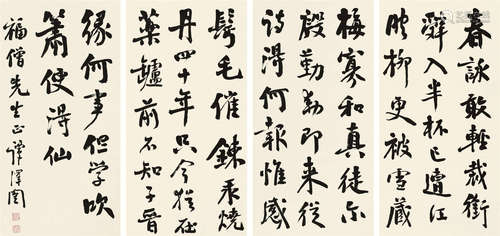 春詠敢輕裁銜
辭入半杯已遭江
映柳更被雪藏
梅寡和真徒尔
殷勤勤即来從
詩得何報惟感
髩毛催鍊汞燒
丹四十年只今猶在
藥鑪前不知子晋
緣何事但学吹
簫便得仙
福僧先生正 譚澤闿